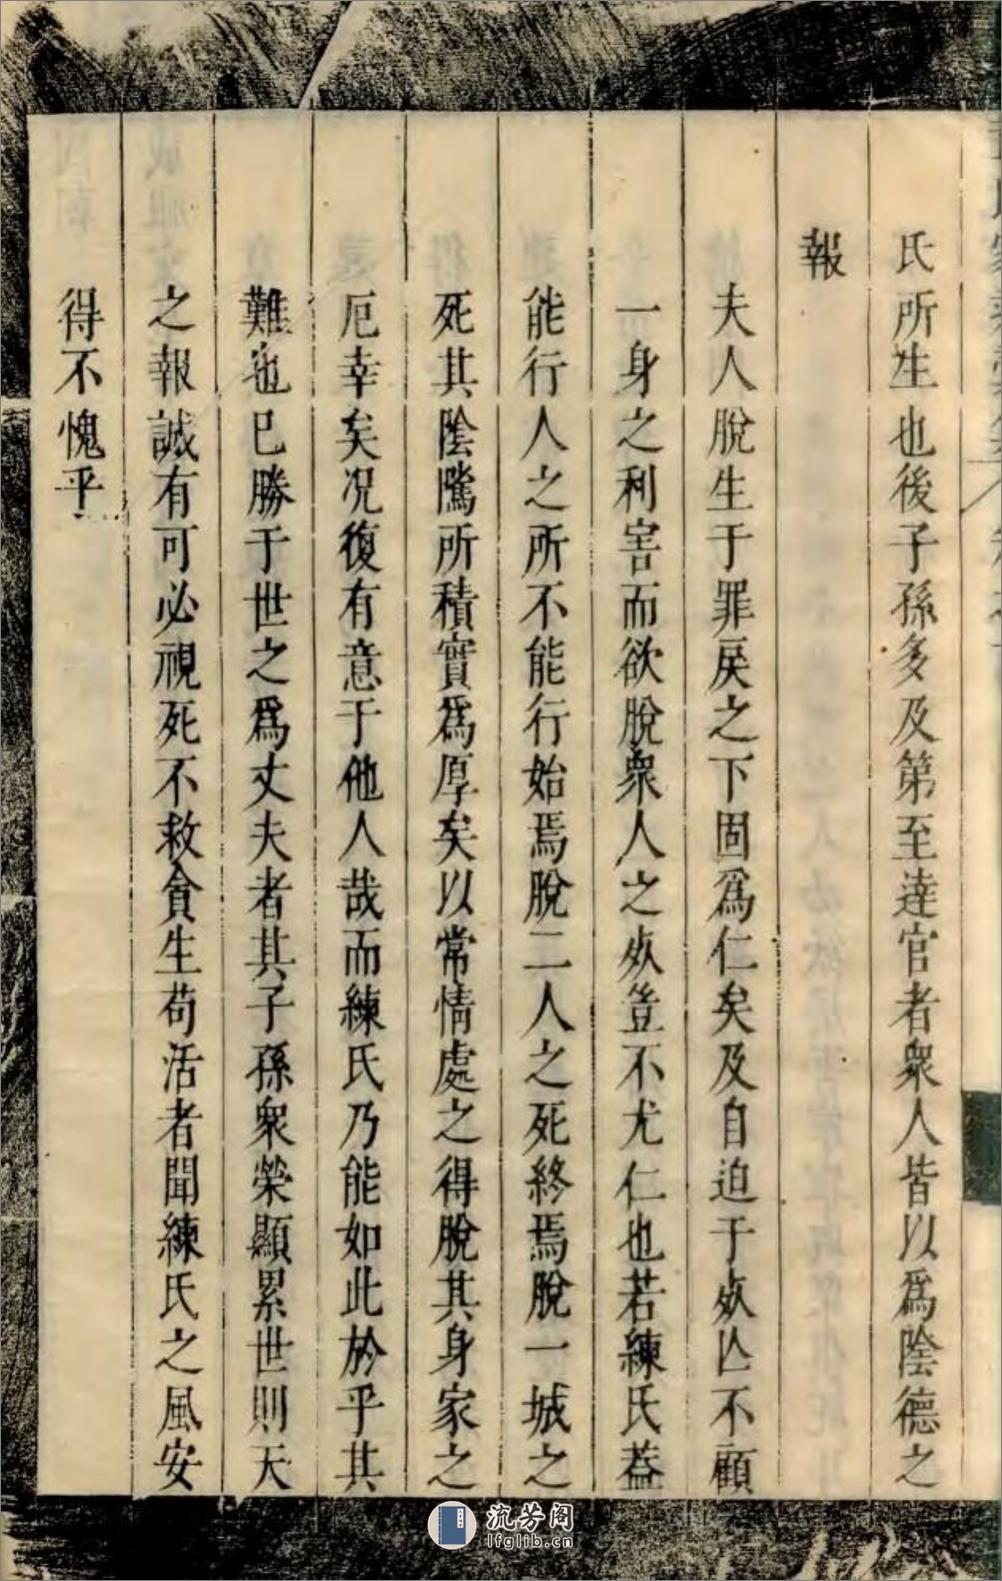 氏所生也後子孫多及第至達官者衆人皆以爲陰德之
報
夫人脫生于罪戾之下固爲仁矣及自迫于死亾不顧
一身之利害而欲脫衆人之死豈不尤仁也若練氏葢
能行人之所不能行始焉脫二人之死終焉脫一城之
死其陰隲所積實爲厚矣以常情處之得脫其身家之
厄幸矣况復有意于他人哉而練氏乃能如此於乎其
難也已勝于世之爲丈夫者其子孫衆榮顯累世則天
之報誠有可必視死不救貪生苟活者聞練氏之風安
得不愧乎
流芳阁
lfglib.cn